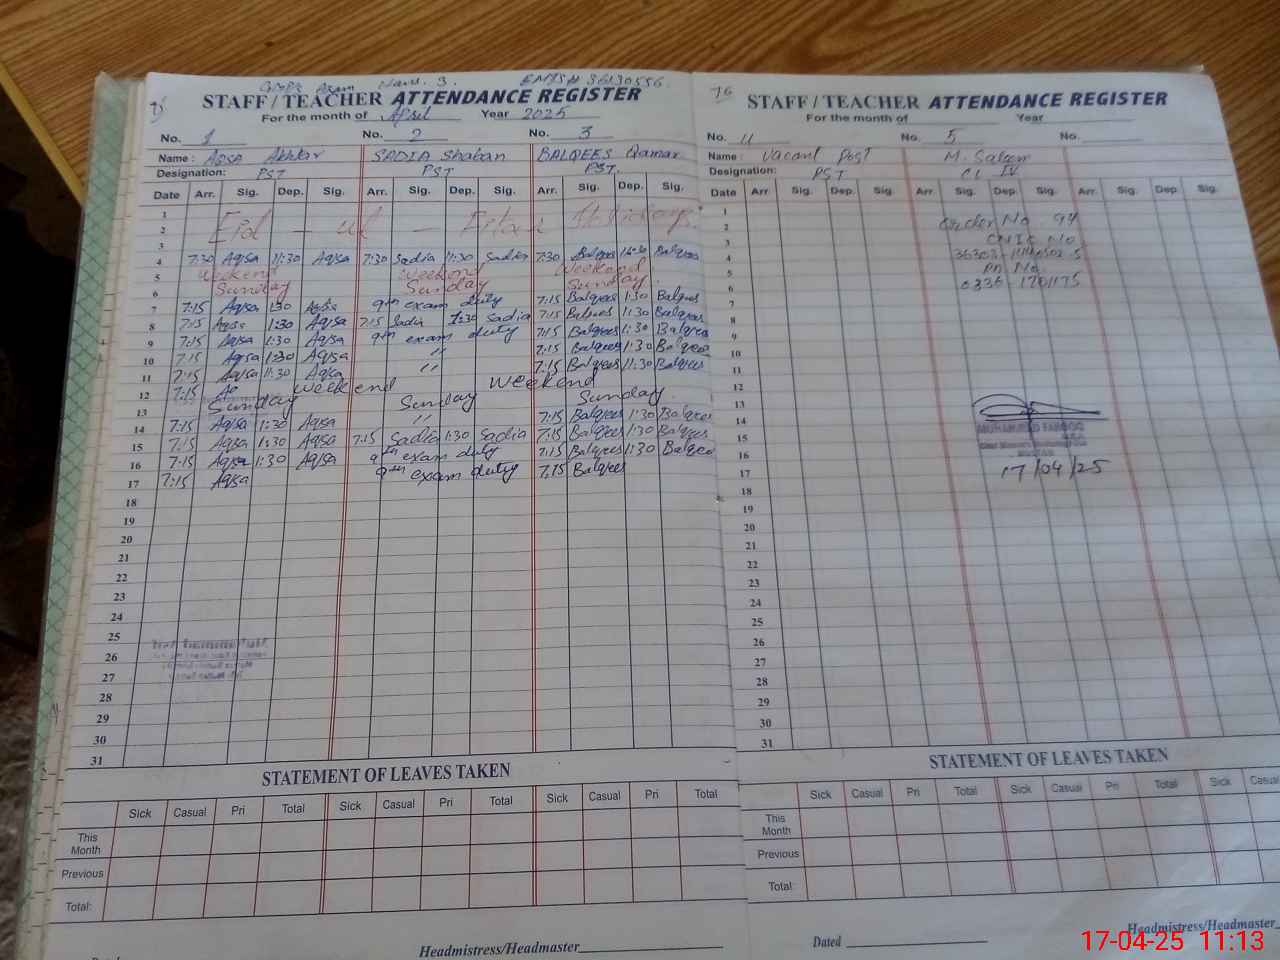 EMIS# 36130556
STAFF / TEACHER ATTENDANCE REGISTER
For the month of April Year 2025
No. 1 No. 2 No. 3
Name: Aqsa Akhtar SADIA Shaban BALQEES Qamar
Designation: PST PST PST.
Date Arr. Sig. Dep. Sig. Arr. Sig. Dep. Sig. Arr. Sig. Dep. Sig.
1
2 Eid - ul - Fitar Holidays.
3
4 7:30 Aqsa 11:30 Aqsa 7:30 Sadia 11:30 Sadia 7:30 Balqees Balqees
5 Weekend Weekend Weekend
6 Sunday Sunday Sunday.
7 7:15 Aqsa 1:30 Aqsa 9th exam duty 7:15 Balqees 1:30 Balqees
8 7:15 Aqsa 1:30 Aqsa 7:15 Sadia 1:30 Sadia 7:15 Balqees 1:30 Balqees
9 7:15 Aqsa 1:30 Aqsa 9th exam duty 7:15 Balqees 1:30 Balqees
10 7:15 Aqsa 1:30 Aqsa " 7:15 Balqees 1:30 Balqees
11 7:15 Aqsa 11:30 Aqsa " 7:15 Balqees 11:30 Balqees
12 7:15 Weekend Weekend
13 Sunday Sunday Sunday.
14 7:15 Aqsa 1:30 Aqsa " 7:15 Balqees 1:30 Balqees
15 7:15 Aqsa 1:30 Aqsa 7:15 Sadia 1:30 Sadia 7:15 Balqees 1:30 Balqees
16 7:15 Aqsa 1:30 Aqsa 9th exam duty 7:15 Balqees 1:30 Balqees
17 7:15 Aqsa 9th exam duty 7:15 Balqees
18
19
20
21
22
23
24
25
26
27
28
29
30
31
STATEMENT OF LEAVES TAKEN
Sick Casual Pri Total Sick Casual Pri Total Sick Casual Pri Total
This Month
Previous
Total:
Headmistress/Headmaster
76
STAFF / TEACHER ATTENDANCE REGISTER
For the month of Year
No. 4 No. 5 No.
Name: Vacant Post M. Saleem
Designation: PST CL IV
Date Arr. Sig. Dep. Sig. Arr. Sig. Dep. Sig. Arr. Sig. Dep. Sig.
1
2 Order No 94
3 CNIC No
4
5 Ph No
6 0336-1701175
7
8
9
10
11
12
13
14
15 MUHAMMAD FAROOQ
16
17 17/04/25
18
19
20
21
22
23
24
25
26
27
28
29
30
31
STATEMENT OF LEAVES TAKEN
Sick Casual Pri Total Sick Casual Pri Total Sick
This Month
Previous
Total:
Dated Headmistress/Headmaster
17-04-25 11:13